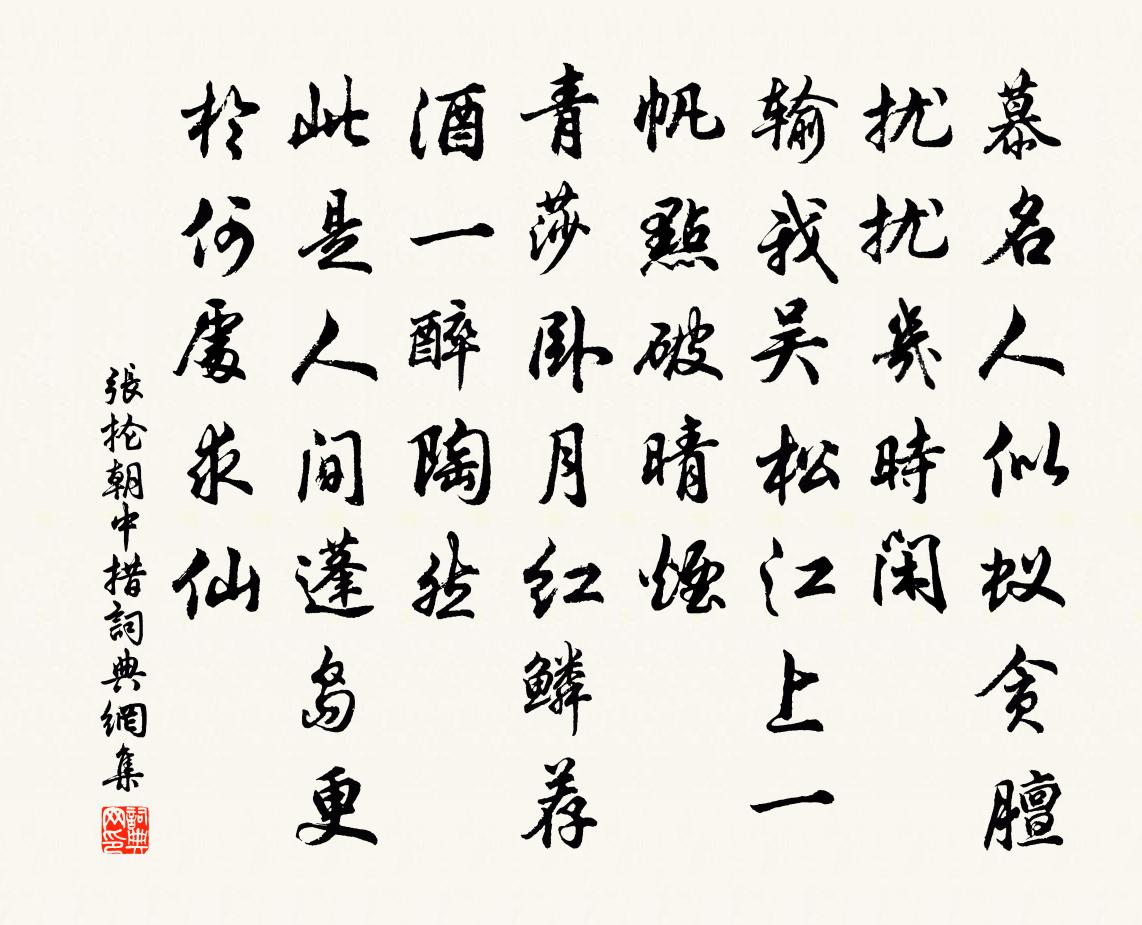 慕名人似蚁贪膻
扰扰幾時闲
输我吴松江上一
帆點破晴煙
青莎卧月红鳞荐
酒一醉陶然
此是人间蓬岛更
於何處求仙
張抡朝中措詞典網集
詞典网印